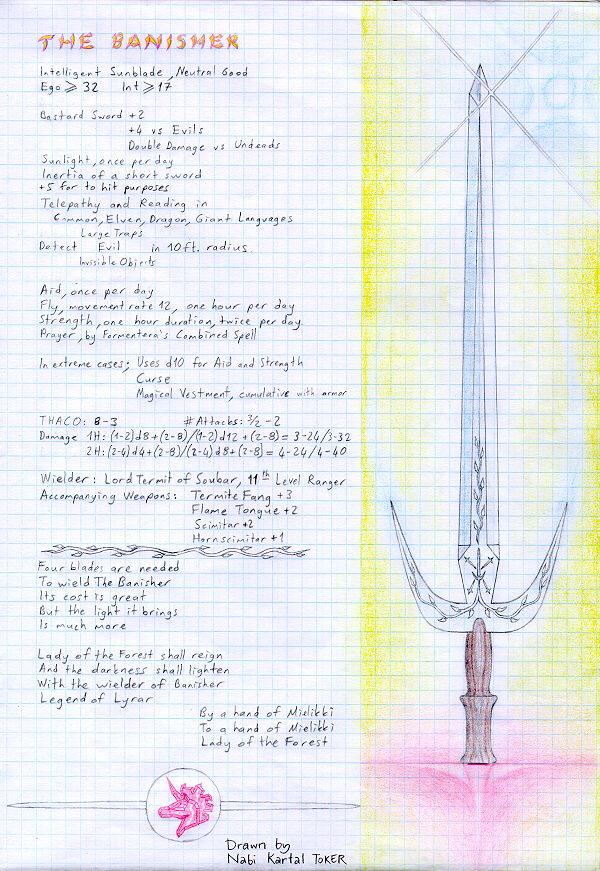 THE BANISHER
Intelligent Sunblade, Neutral Good
Ego ⩾ 32 Int ⩾ 17
Bastard Sword +2
+4 vs Evils
Double Damage vs Undeads
Sunlight, once per day
Inertia of a short sword
+5 for to hit purposes
Telepathy and Reading in
Common, Elven, Dragon, Giant Languages
Large Traps
Detect Evil in 10 ft. radius
Invisible Objects
Aid, once per day
Fly, movement rate 12, one hour per day
Strength, one hour duration, twice per day
Prayer, by Formentera's Combined Spell
In extreme cases; Uses d10 for Aid and Strength
Curse
Magical Vestment, cumulative with armor
THACO: 8-3 #Attacks: 3/2 - 2
Damage 1H: (1-2)d8+(2-8)/(1-2)d12+(2-8) = 3-24/3-32
2H: (2-4)d4+(2-8)/(2-4)d8+(2-8) = 4-24/4-40
Wielder: Lord Termit of Soubar, 11th Level Ranger
Accompanying Weapons: Termite Fang +3
Flame Tongue +2
Scimitar +2
Hornscimitar +1
Four blades are needed
To wield The Banisher
Its cost is great
But the light it brings
Is much more
Lady of the Forest shall reign
And the darkness shall lighten
With the wielder of Banisher
Legend of Lyrar
By a hand of Mielikki
To a hand of Mielikki
Lady of the Forest
Drawn by
Nabi Kartal TOKER